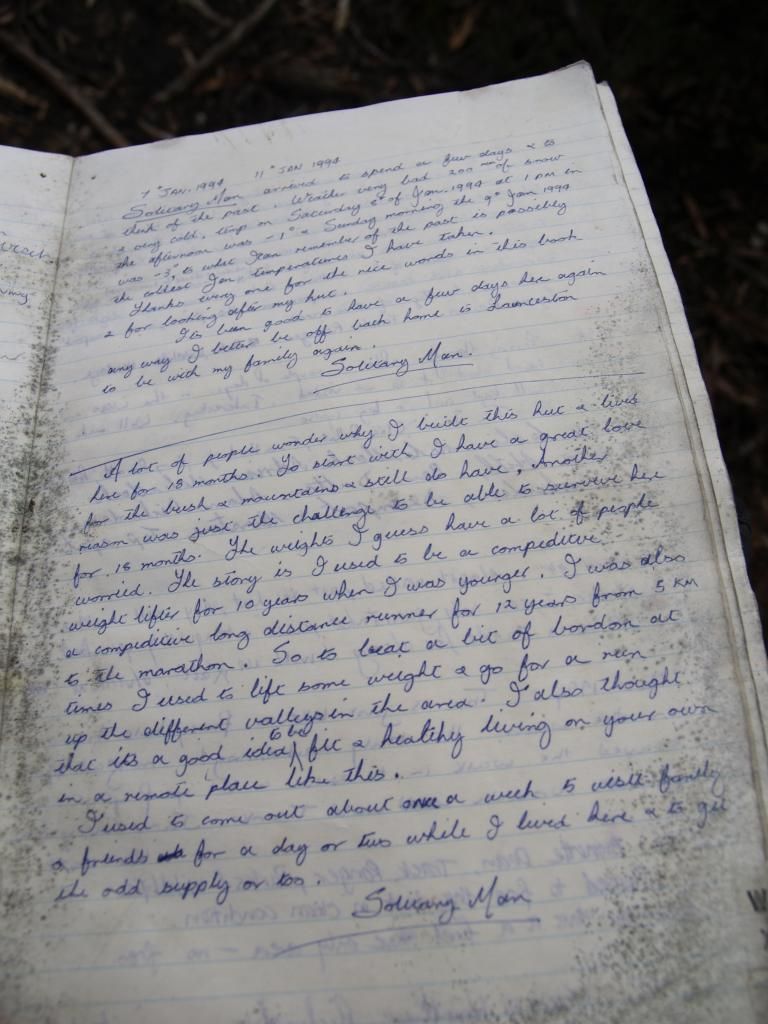 7th JAN. 1994 11th JAN 1994
Solitary Man arrived to spend a few days & to
think of the past. Weather very bad 200 mm of snow
& very cold, temp on Saturday 8th of Jan. 1994 at 1 PM in
the afternoon was -1° & Sunday morning the 9th Jan 1994
was -3°, to what I can remember of the past is possibley
the coldest Jan, temperatures I have taken.
Thanks every one for the nice words in this book
& for looking after my hut.
Its been good to have a few days here again
any way I better be off back home to Launceston
to be with my family again.
Solitary Man.
A lot of people wonder why I built this hut & lived
here for 18 months. To start with I have a great love
for the bush & mountains & still do have, Another
reason was just the challenge to be able to survive here
for 18 months. The weights I guess have a lot of people
worried. The story is I used to be a compeditive
weight lifter for 10 years when I was younger. I was also
a compeditive long distance runner for 12 years from 5 KM
to the marathon. So to beat a bit of bordom at
times I used to lift some weight & go for a run
up the different valleys in the area. I also thought
that its a good idea to be fit & healthy living on your own
in a remote place like this.
I used to come out about once a week to visit family
& friends for a day or two while I lived here & to get
the odd supply or too.
Solitary Man